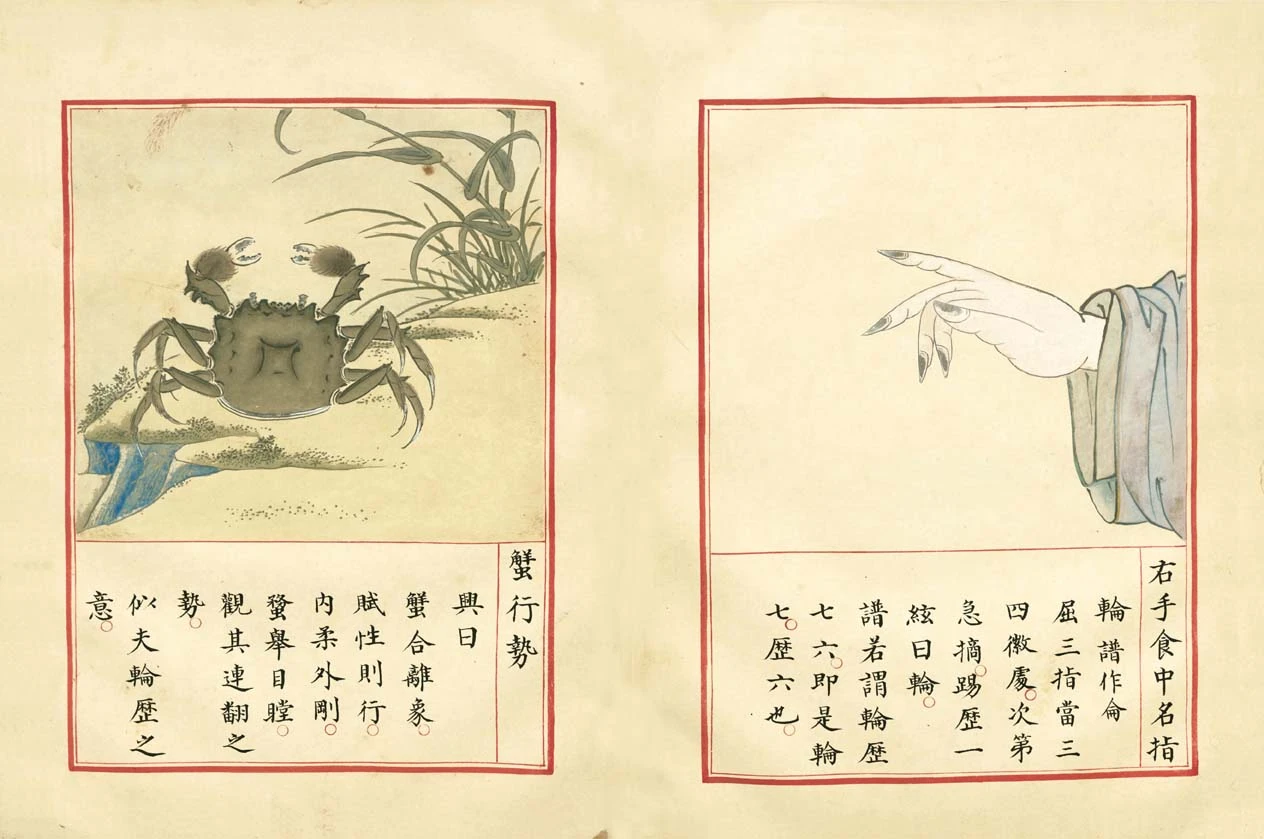 右手食中名指
輪 譜作侖
屈三指當三
四徽處。次第
急摘。踢歷一
絃曰輪。
譜若謂輪歷
七六。即是輪
七。歷六也。
蟹行勢
興曰
蟹合離象。
賦性則行。
內柔外剛。
螯舉目瞠。
觀其連翻之
勢。
似夫輪歷之
意。